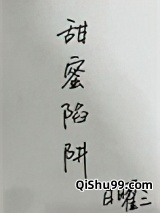 甜蜜陷阱
日曜三
QiShu99.com